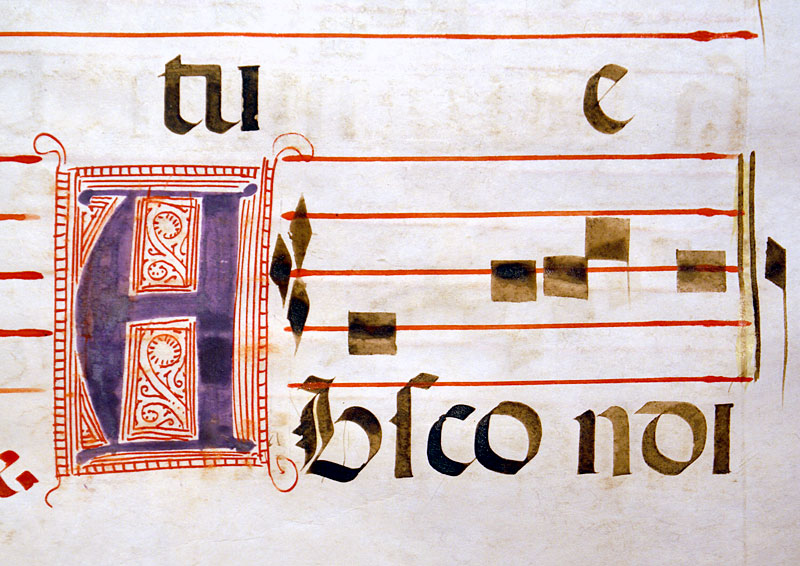 tu e
&.
Absco ndi